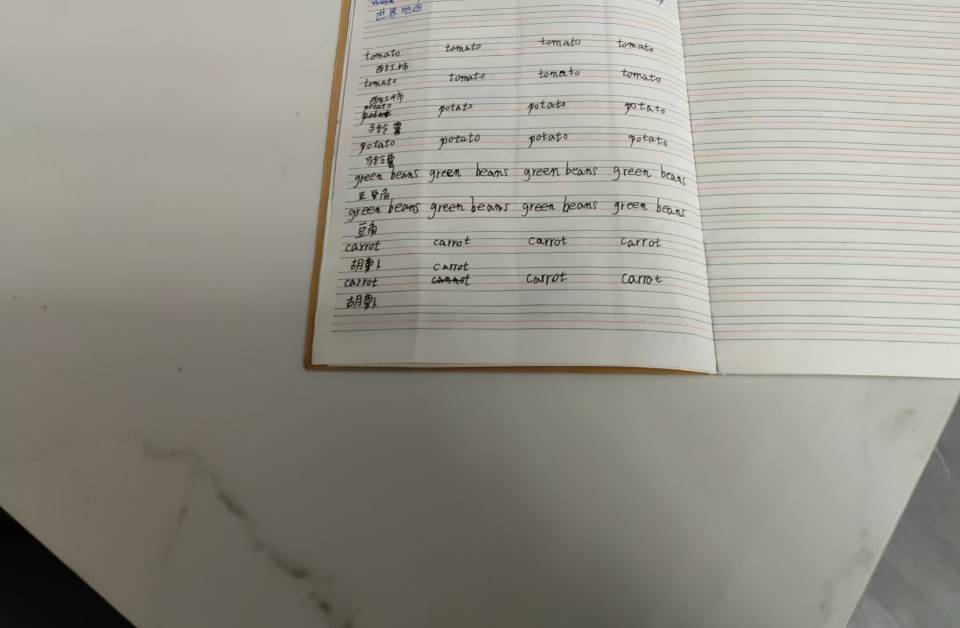 世界地图
tomato tomato tomato tomato
西红柿
tomato tomato tomato tomato
西红柿
potato potato potato potato
马铃薯
potato potato potato potato
马铃薯
green beans green beans green beans green beans
豆角
green beans green beans green beans green beans
豆角
carrot carrot carrot carrot
胡萝卜 carrot
carrot carrot carrot
胡萝卜